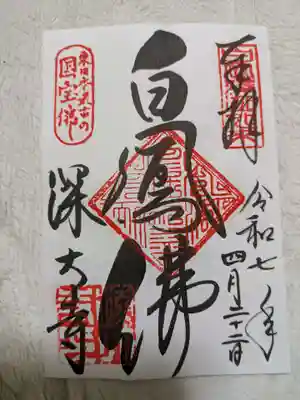 奉拝
令和七年
四月二十二日
白鳳佛
深大寺
東日本最古の
国宝佛